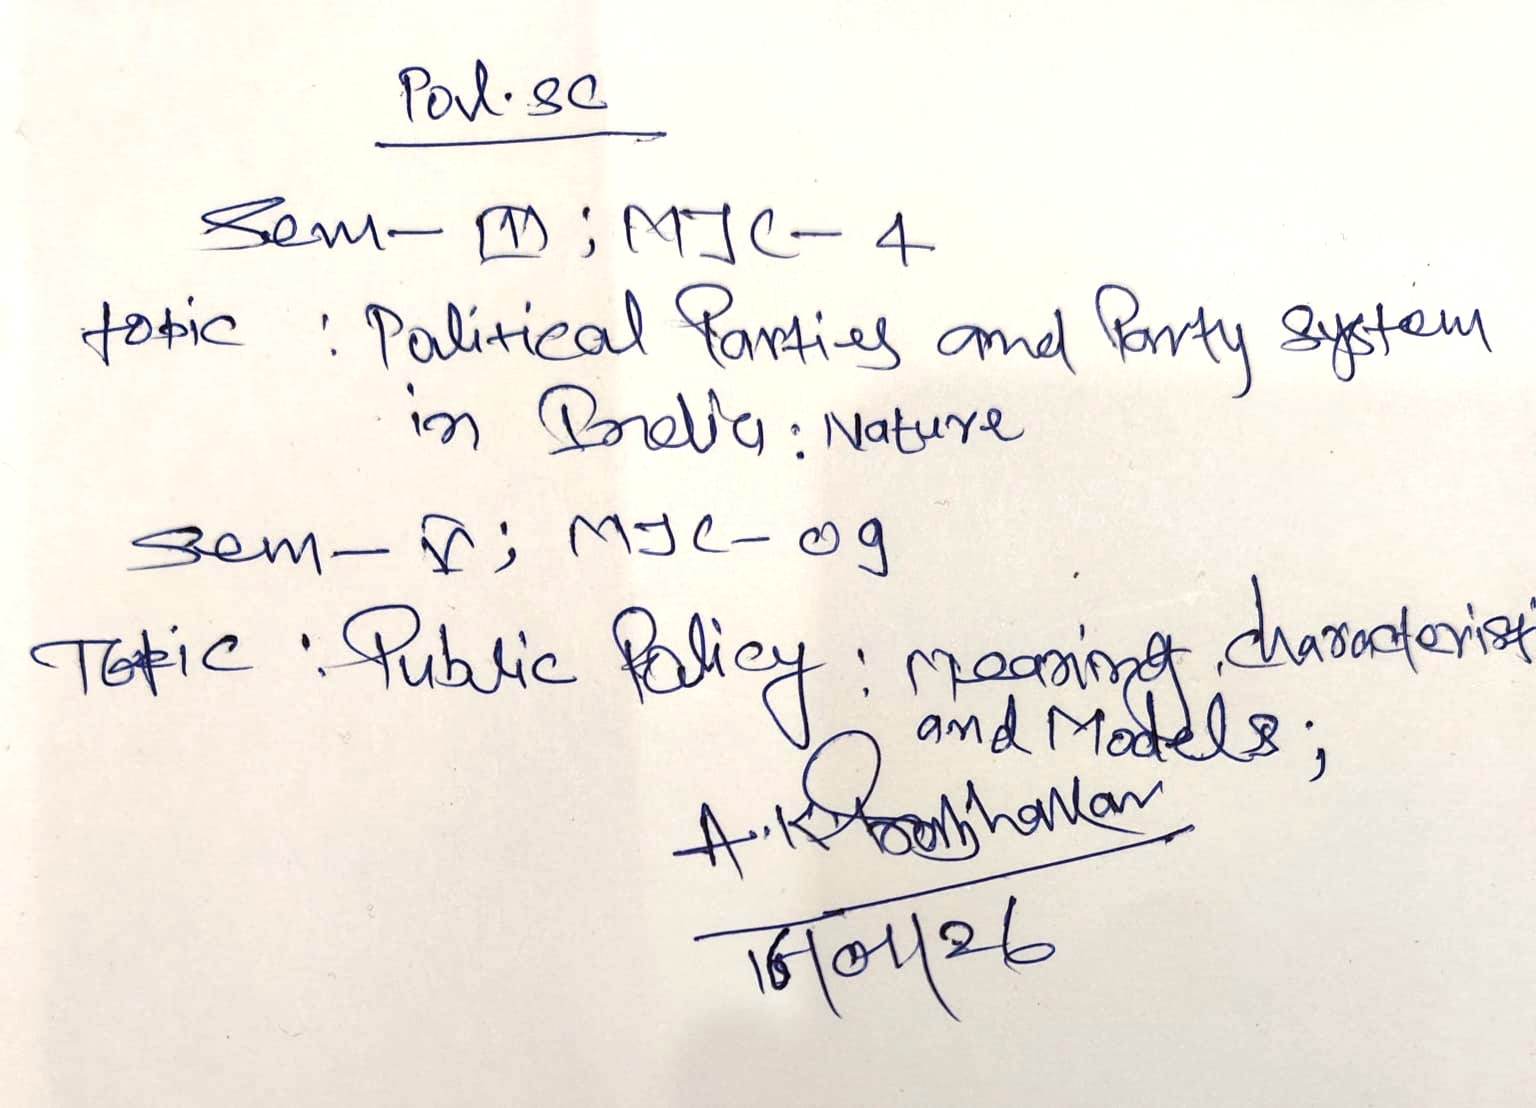 Pol. Sc
Sem - III ; MJC - 4
topic : Political Parties and Party System
in India : Nature
Sem - V ; MJC - 09
Topic : Public Policy : Meaning, characterist
and Models ;
A.K Prabhakar
16/01/26